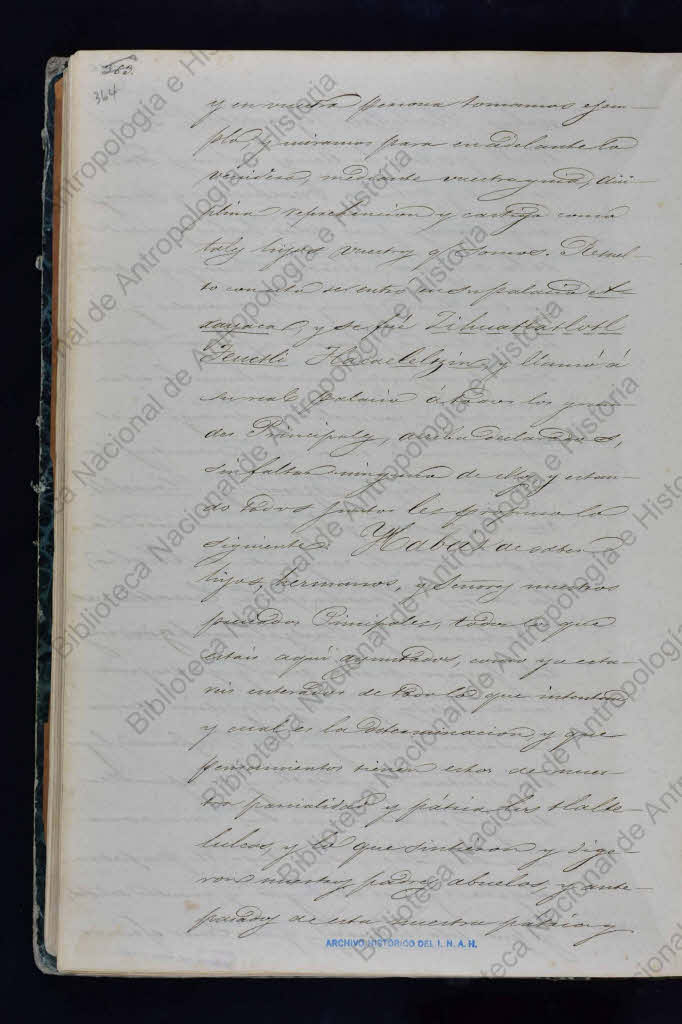 363.
364
y en vuestra persona tomamos ejem-
plo, y miramos para en adelante lo
venidero, mediante vuestra guia, dici-
plina reprehencion y castigo como
tales hijos vuestros q somos. Resuel-
to con esto se entró en su palacio A-
xayaca, y se fué Zihuatlatlotl
Teuctli Tlacaeleltzin, y llamó á
su real Palacio á todos los gran-
des Principales, arriba declarados,
sin faltar ninguno de ellos, y estan-
do todos juntos les propuso lo
siguiente. Habeis de saber
hijos, hermanos, y Señores nuestros
preciados Principales, todos los que
estais aquí ajuntados, como ya esta-
reis enterados de todo lo que intentan,
y cual es la determinacion, y que
pensamientos tienen estos de nues-
tra parcialidad y pátria los tlalte-
lulcos, y lo que sintieron y dige-
ron nuestros padres, abuelos, y ante-
pasados de esta nuestra pátria y
ARCHIVO HISTORICO DEL I. N. A. H.
Biblioteca Nacional de Antropología e Historia